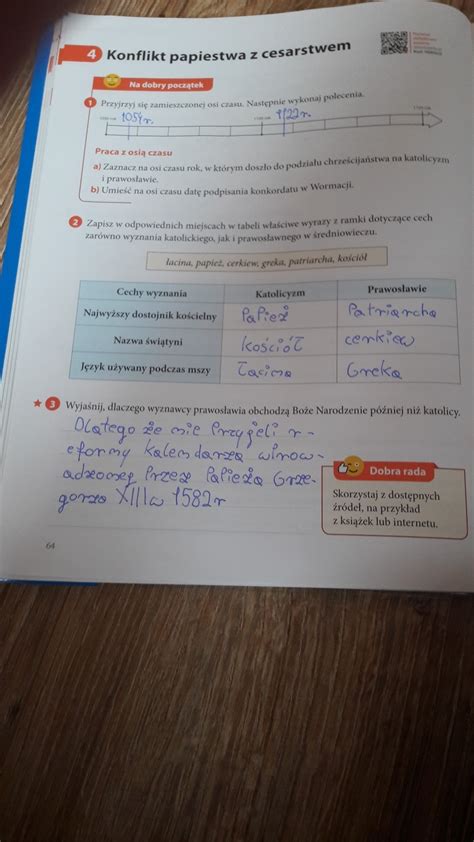 4 Konflikt papiestwa z cesarstwem
Na dobry początek
1 Przyjrzyj się zamieszczonej osi czasu. Następnie wykonaj polecenia.
1054r. 1122r.
Praca z osią czasu
a) Zaznacz na osi czasu rok, w którym doszło do podziału chrześcijaństwa na katolicyzm
i prawosławie.
b) Umieść na osi czasu datę podpisania konkordatu w Wormacji.
2 Zapisz w odpowiednich miejscach w tabeli właściwe wyrazy z ramki dotyczące cech
zarówno wyznania katolickiego, jak i prawosławnego w średniowieczu.
łacina, papież, cerkiew, greka, patriarcha, kościół
Cechy wyznania Katolicyzm Prawosławie
Najwyższy dostojnik kościelny Papież Patriarcha
Nazwa świątyni kościół cerkiew
Język używany podczas mszy Łacina Greka
3 Wyjaśnij, dlaczego wyznawcy prawosławia obchodzą Boże Narodzenie później niż katolicy.
Dlatego że nie Przyjeli r-
eformy Kalendarza wprow-
adzonej Przez Papieża Grze-
gorza XIII w 1582r
Dobra rada
Skorzystaj z dostępnych
źródeł, na przykład
z książek lub internetu.
64